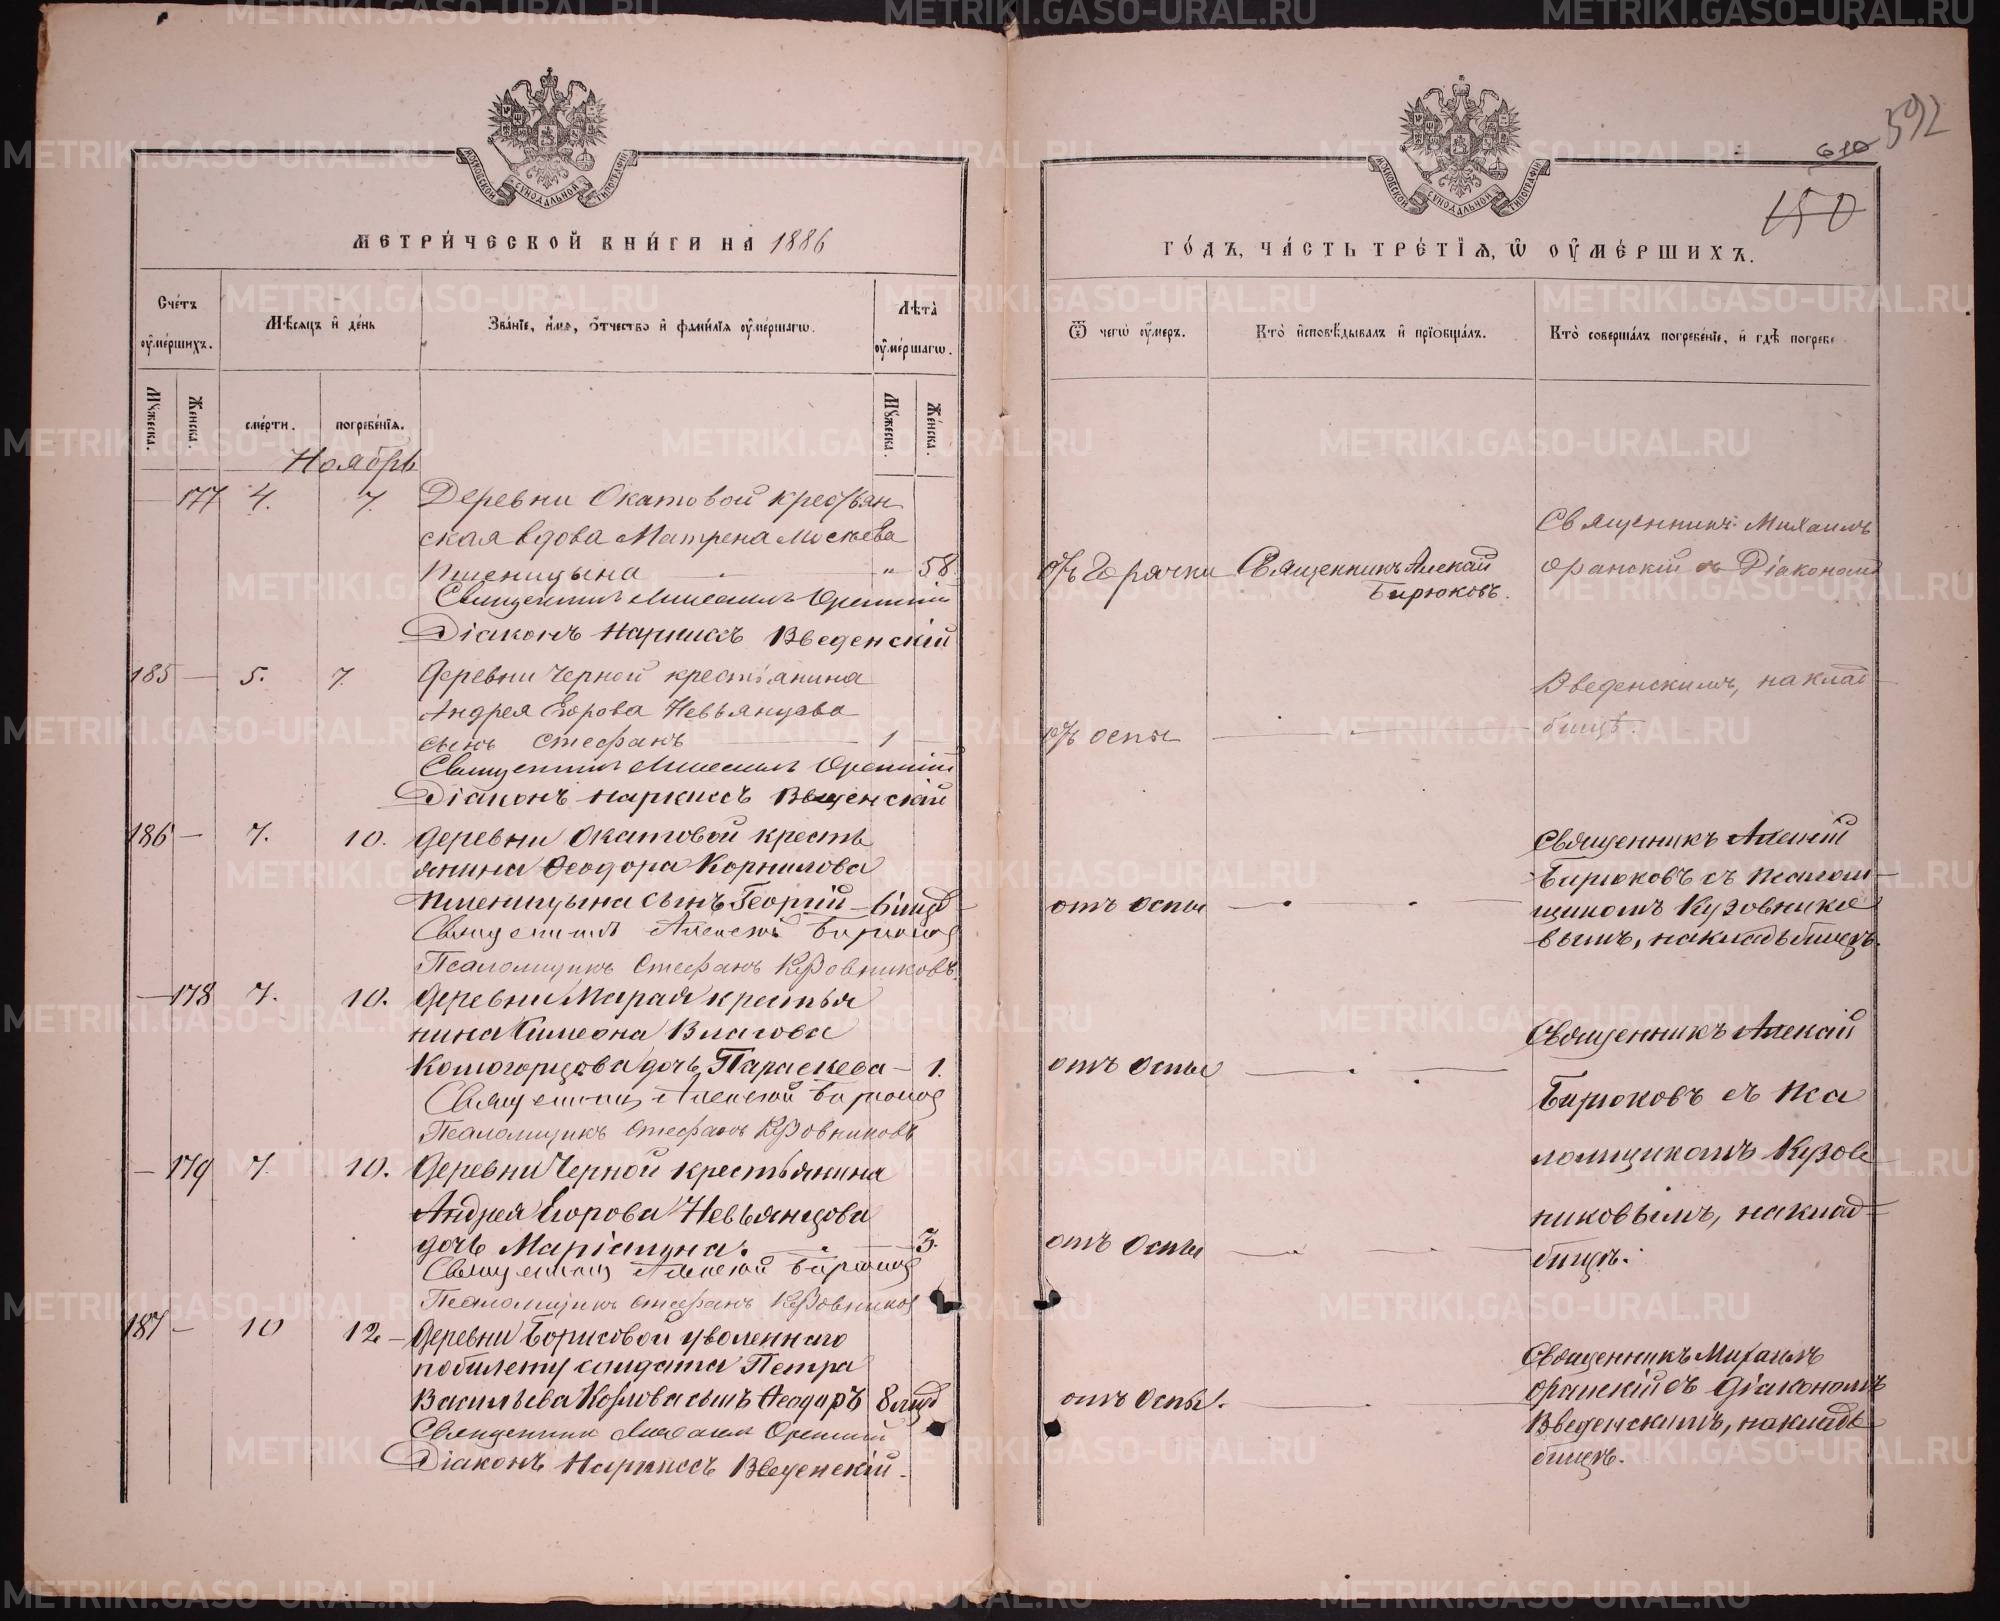 МЕТРИ́ЧЕСКОЙ КНИ́ГИ НА 1886
Сче́тъ оу҆ме́ршихъ.
Мѣ́сяцъ и҆ де́нь
Зва́нїе, и҆́мѧ, ѻ҆́тчество и҆ фами́лїѧ оу҆ме́ршагѡ.
Лѣ́та оу҆ме́ршагѡ.
Мꙋ́жеска.
Же́нска.
сме́рти.
погребе́нїѧ.
Мꙋ́жеска.
Же́нска.
Ноябрь
177 4. 7. Деревни Окатовой крестьян
ская вдова Матрена Москева
Пшеницына " 58.
Священникъ Михаилъ Оранский
Діаконъ Наркиссъ Введенскій
185 — 5. 7. Деревни Черной крестьянина
Андрея Егорова Невьянцова
сынъ Стефанъ 1
Священникъ Михаилъ Оранский
Діаконъ Наркиссъ Введенскій
186 — 7. 10. Деревни Окатовой кресть
янина Ѳеодора Корнилова
Пшеницына сынъ Георгій — 6 мцд
Священникъ Алексей Бирюков
Псаломщикъ Стефанъ Кузовниковъ.
— 178 7. 10. Деревни Марай крестья
нина Симеона Власова
Комогорцова дочь Параскева — 1.
Священникъ Алексей Бирюков
Псаломщикъ Стефанъ Кузовниковъ
— 179 7. 10. Деревни Черной крестьянина
Андрея Егорова Невьянцова
дочь Маріамна. 3.
Священникъ Алексей Бирюков
Псаломщикъ Стефанъ Кузовников
187 — 10 12 — Деревни Борисовой уволеннаго
по билету солдата Петра
Васильева Козлова сынъ Ѳеодоръ 8 мцд
Священник Михаил Оранский
Діаконъ Наркиссъ Введенскій.
592
610
150
ГО́ДЪ, ЧА́СТЬ ТРЕ́ТЇѦ, Ѡ҆ ОУ҆МЕ́РШИХЪ.
Ѿ чегѡ̀ оу҆́меръ.
Кто̀ и҆сповѣ́дывалъ и҆ прїѡбща́лъ.
Кто̀ соверша́лъ погребе́нїе, и҆ гдѣ̀ погребе
отъ Горячки
Священникъ Алексій
Бирюковъ.
Священникъ Михаилъ
Оранскій съ Діакономъ
Введенскимъ, на клад
бищѣ.
отъ оспы
отъ оспы
Священникъ Алексій
Бирюковъ съ псалом
щикомъ Кузовнико
вымъ, на кладьбищѣ.
отъ оспы
Священникъ Алексій
Бирюковъ съ Пса
ломщикомъ Кузов
никовымъ, на клад
бищѣ.
отъ оспы
отъ Оспы.
Священникъ Михаилъ
Оранскій съ Діакономъ
Введенскимъ, на кладь
бищѣ.
METRIKI.GASO-URAL.RU